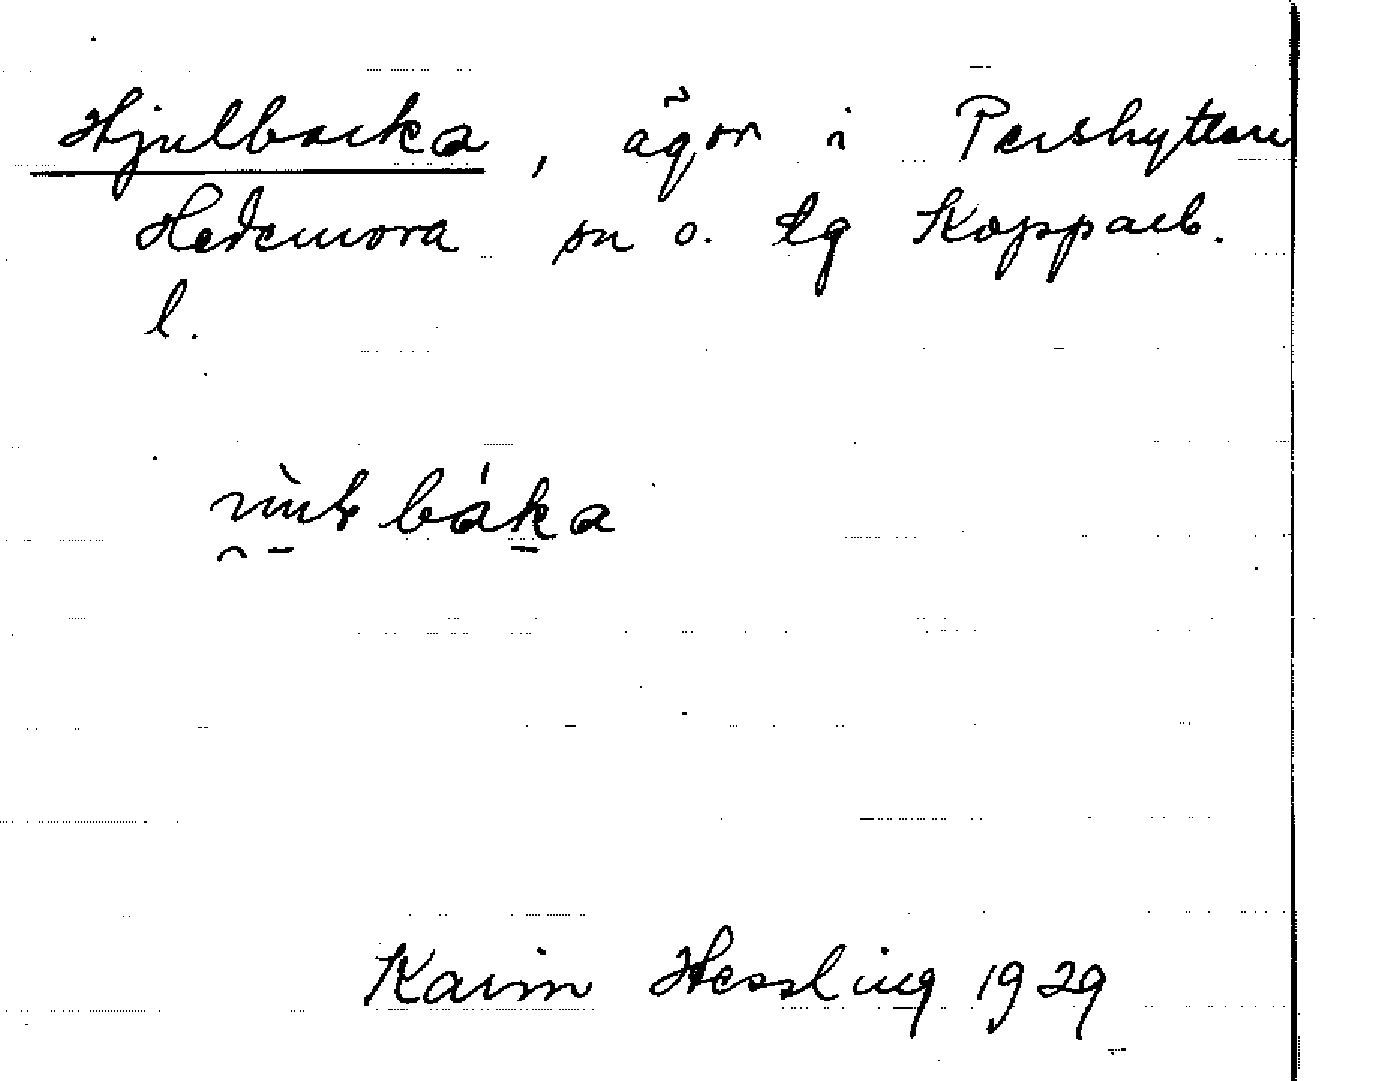 Hjulbacka, ägor i Pershyttan
Hedemora sn o. tg Kopparb.
l.
Karin Hessling 1929